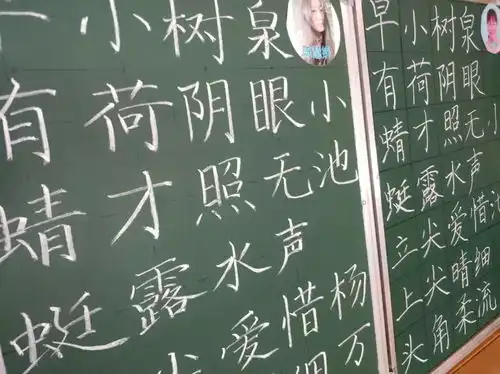 小池
杨万
泉眼无声惜细
树阴照水爱
小荷才露
有蜻蜓
小
泉眼无声惜细流
树阴照水爱晴柔
小荷才露尖尖角
早有蜻蜓立上头